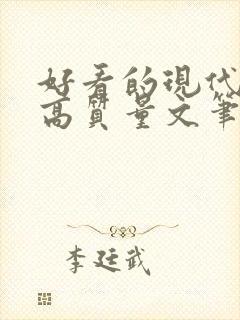 好看的现代
高质量文笔
李廷武